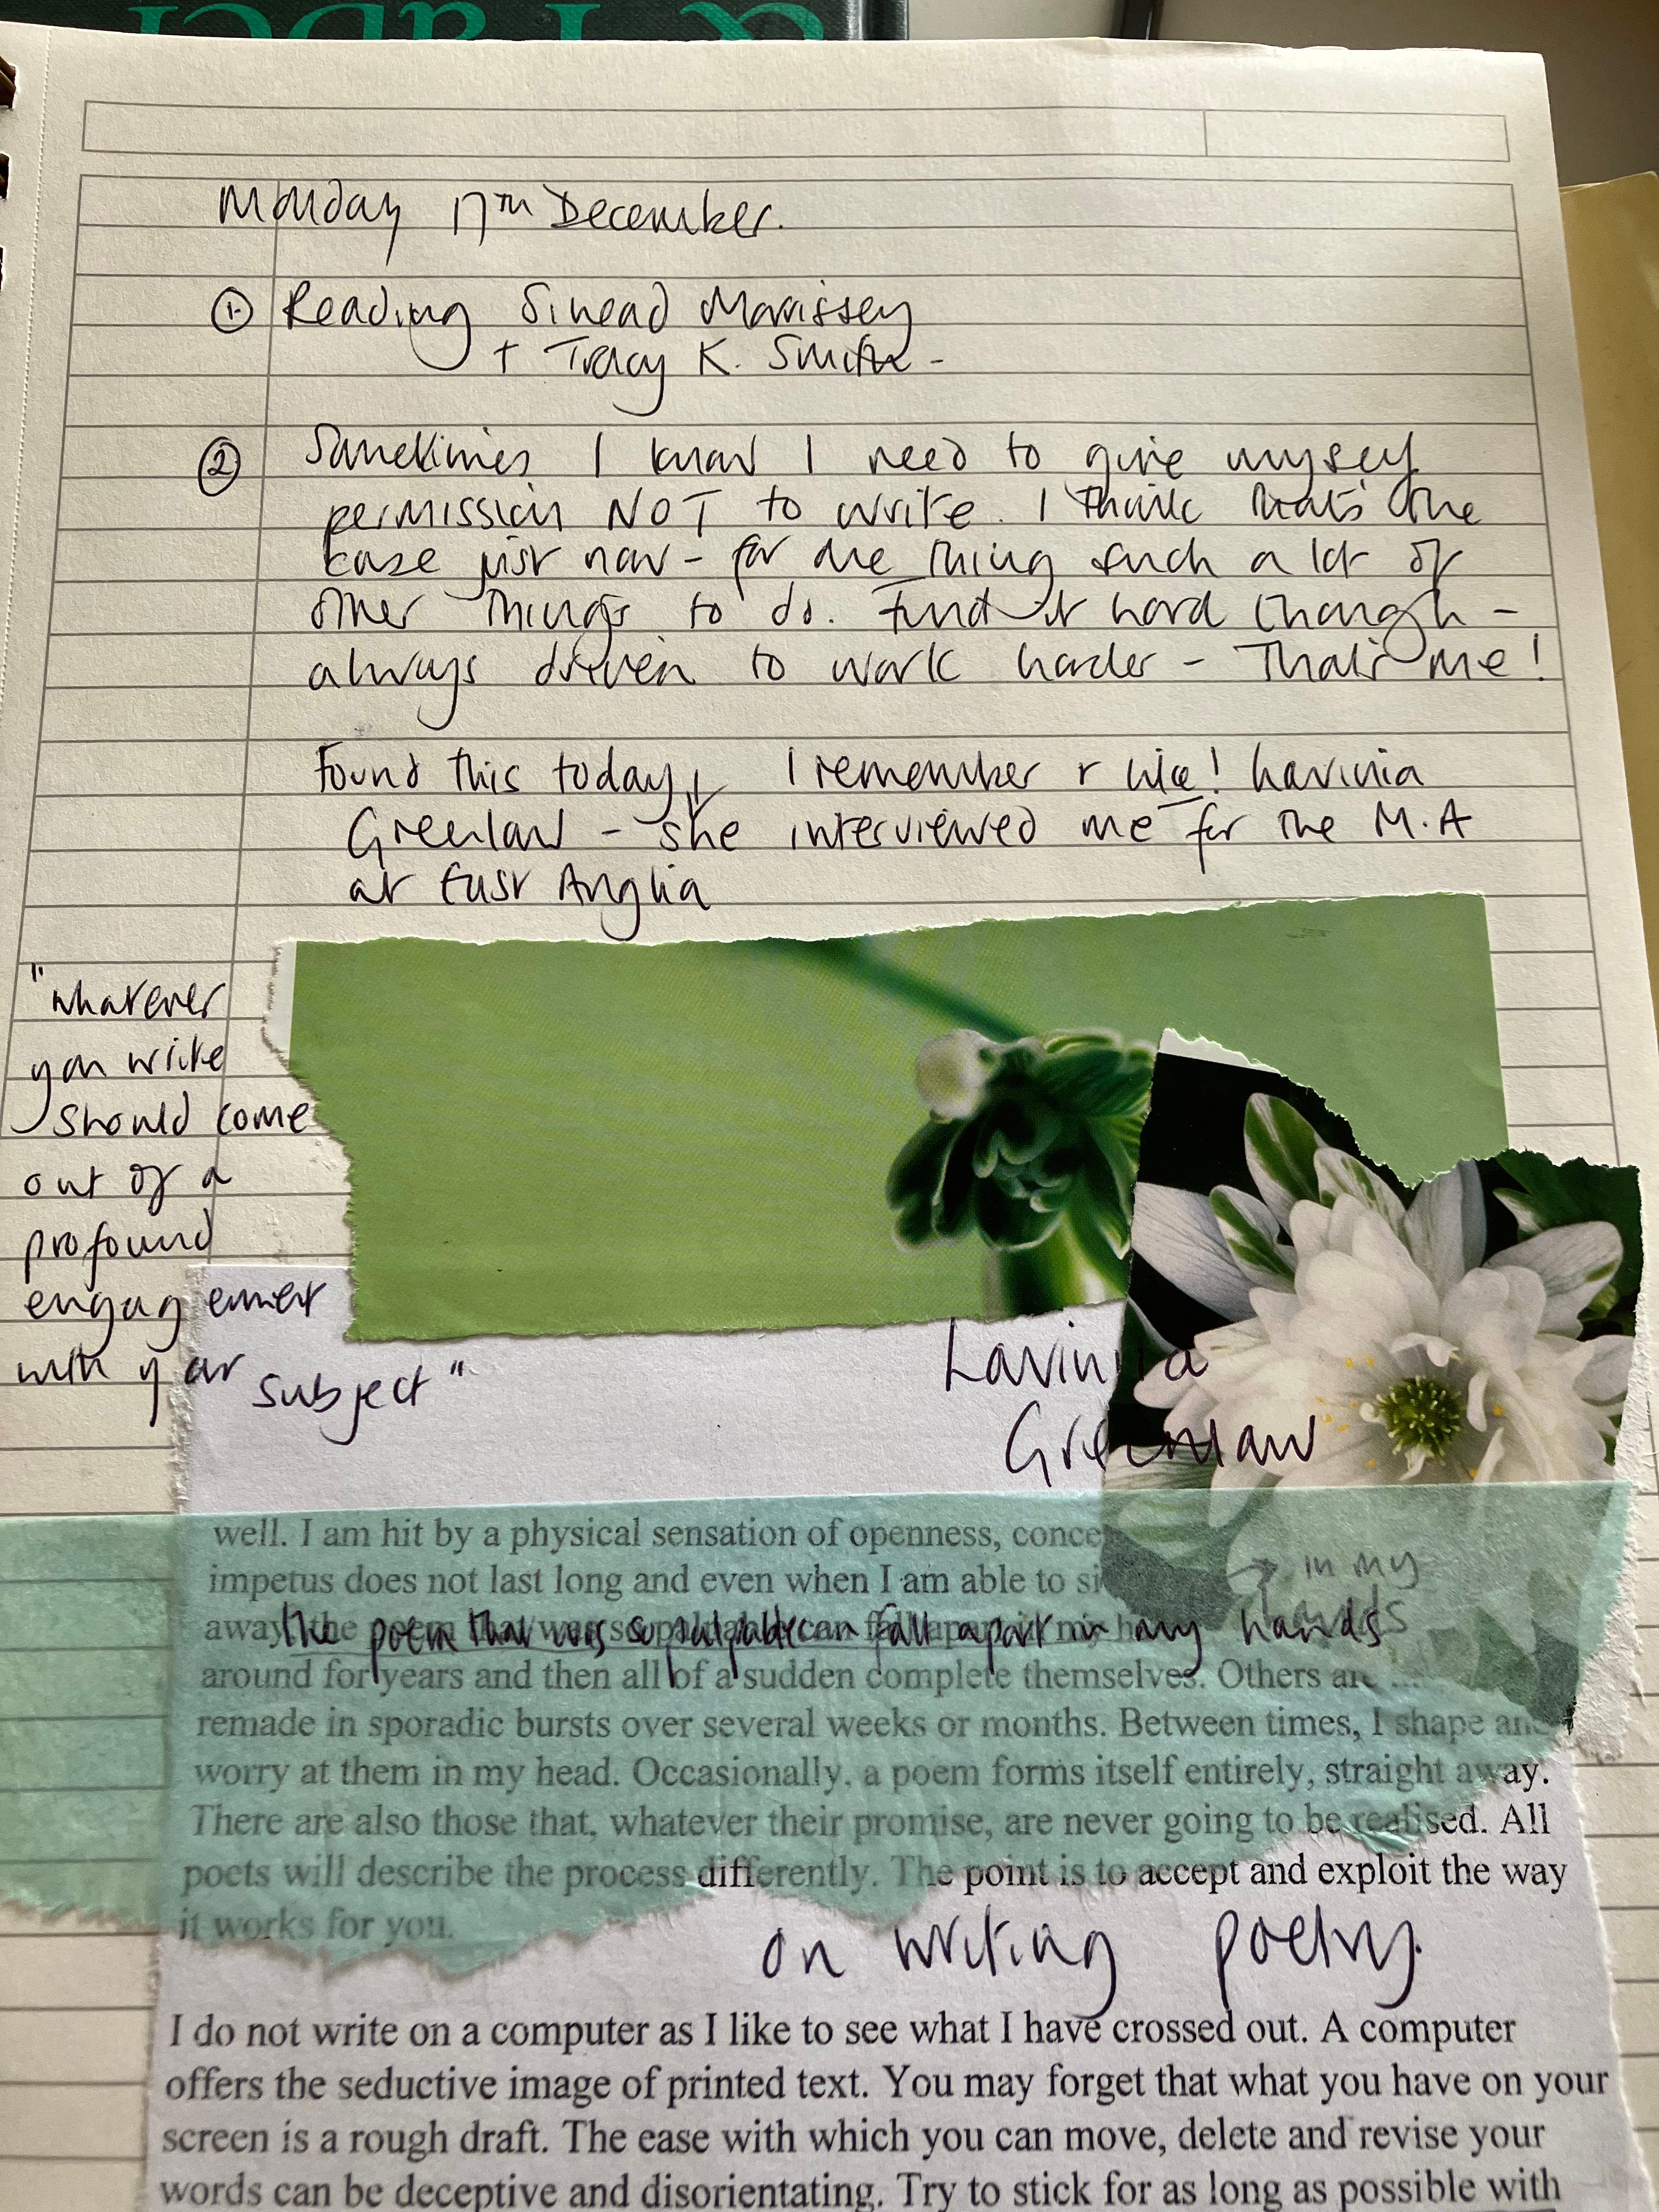 Monday 17th December.
① Reading Sinead Morrissey
+ Tracy K. Smith -
② Sometimes I know I need to give myself
permission NOT to write. I think that's the
case just now - for one thing such a lot of
other things to do. Find it hard though -
always driven to work harder - That's me!
Found this today↓ I remember r nice! Lavinia
Greenlaw - she interviewed me for the M.A
at East Anglia
"whatever
you write
should come
out of a
profound
engagement
with your subject"
Lavinia
Greenlaw
well. I am hit by a physical sensation of openness,
impetus does not last long and even when I am able to
→ in my
hands
away, the poem that was so palpable can fall apart in my
the poem that was so palpable can fall apart in my hands
around for years and then all of a sudden complete themselves. Others are
remade in sporadic bursts over several weeks or months. Between times, I shape and
worry at them in my head. Occasionally, a poem forms itself entirely, straight away.
There are also those that, whatever their promise, are never going to be realised. All
poets will describe the process differently. The point is to accept and exploit the way
it works for you.
on writing poetry.
I do not write on a computer as I like to see what I have crossed out. A computer
offers the seductive image of printed text. You may forget that what you have on your
screen is a rough draft. The ease with which you can move, delete and revise your
words can be deceptive and disorientating. Try to stick for as long as possible with